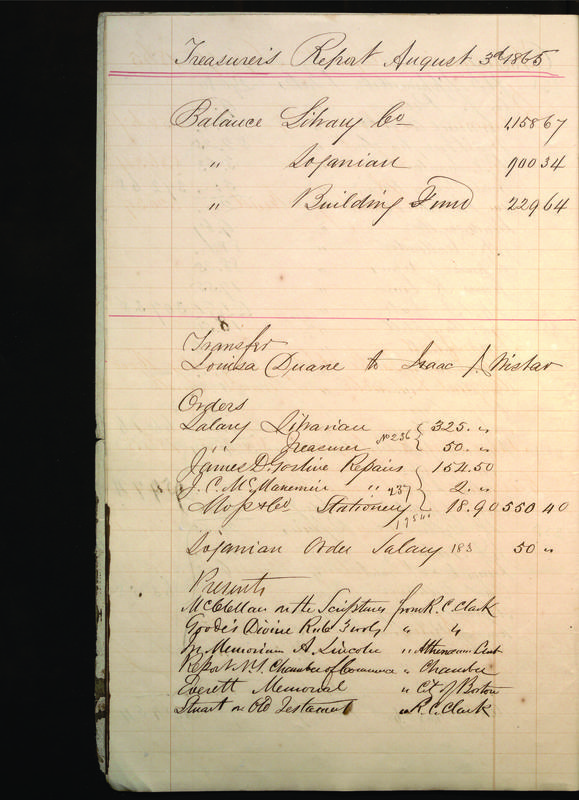 Treasurer's Report August 3d 1865
Balance Library Co 1,158 67
" Loganian 900 34
" Building Fund 229 64
Transfer
Louisa Duane to Isaac J. Wistar
Orders
Salary Librarian 325. "
" Treasurer No 236 50. "
James D. Gorline Repairs 154.50
J. C. McManemin " 237 2. "
Moss & Co Stationery 18.90 550 40
Loganian Order Salary 183 50 "
Presents
McClellan on the Scriptures from R. C. Clark
Goode's Divine Rule 3 vols " "
In Memorium A. Lincoln " Athenaeum
Report N.Y. Chamber of Commerce " Chamber
Everett Memorial " Ct of Boston
Stuart on Old Testament " R. C. Clark